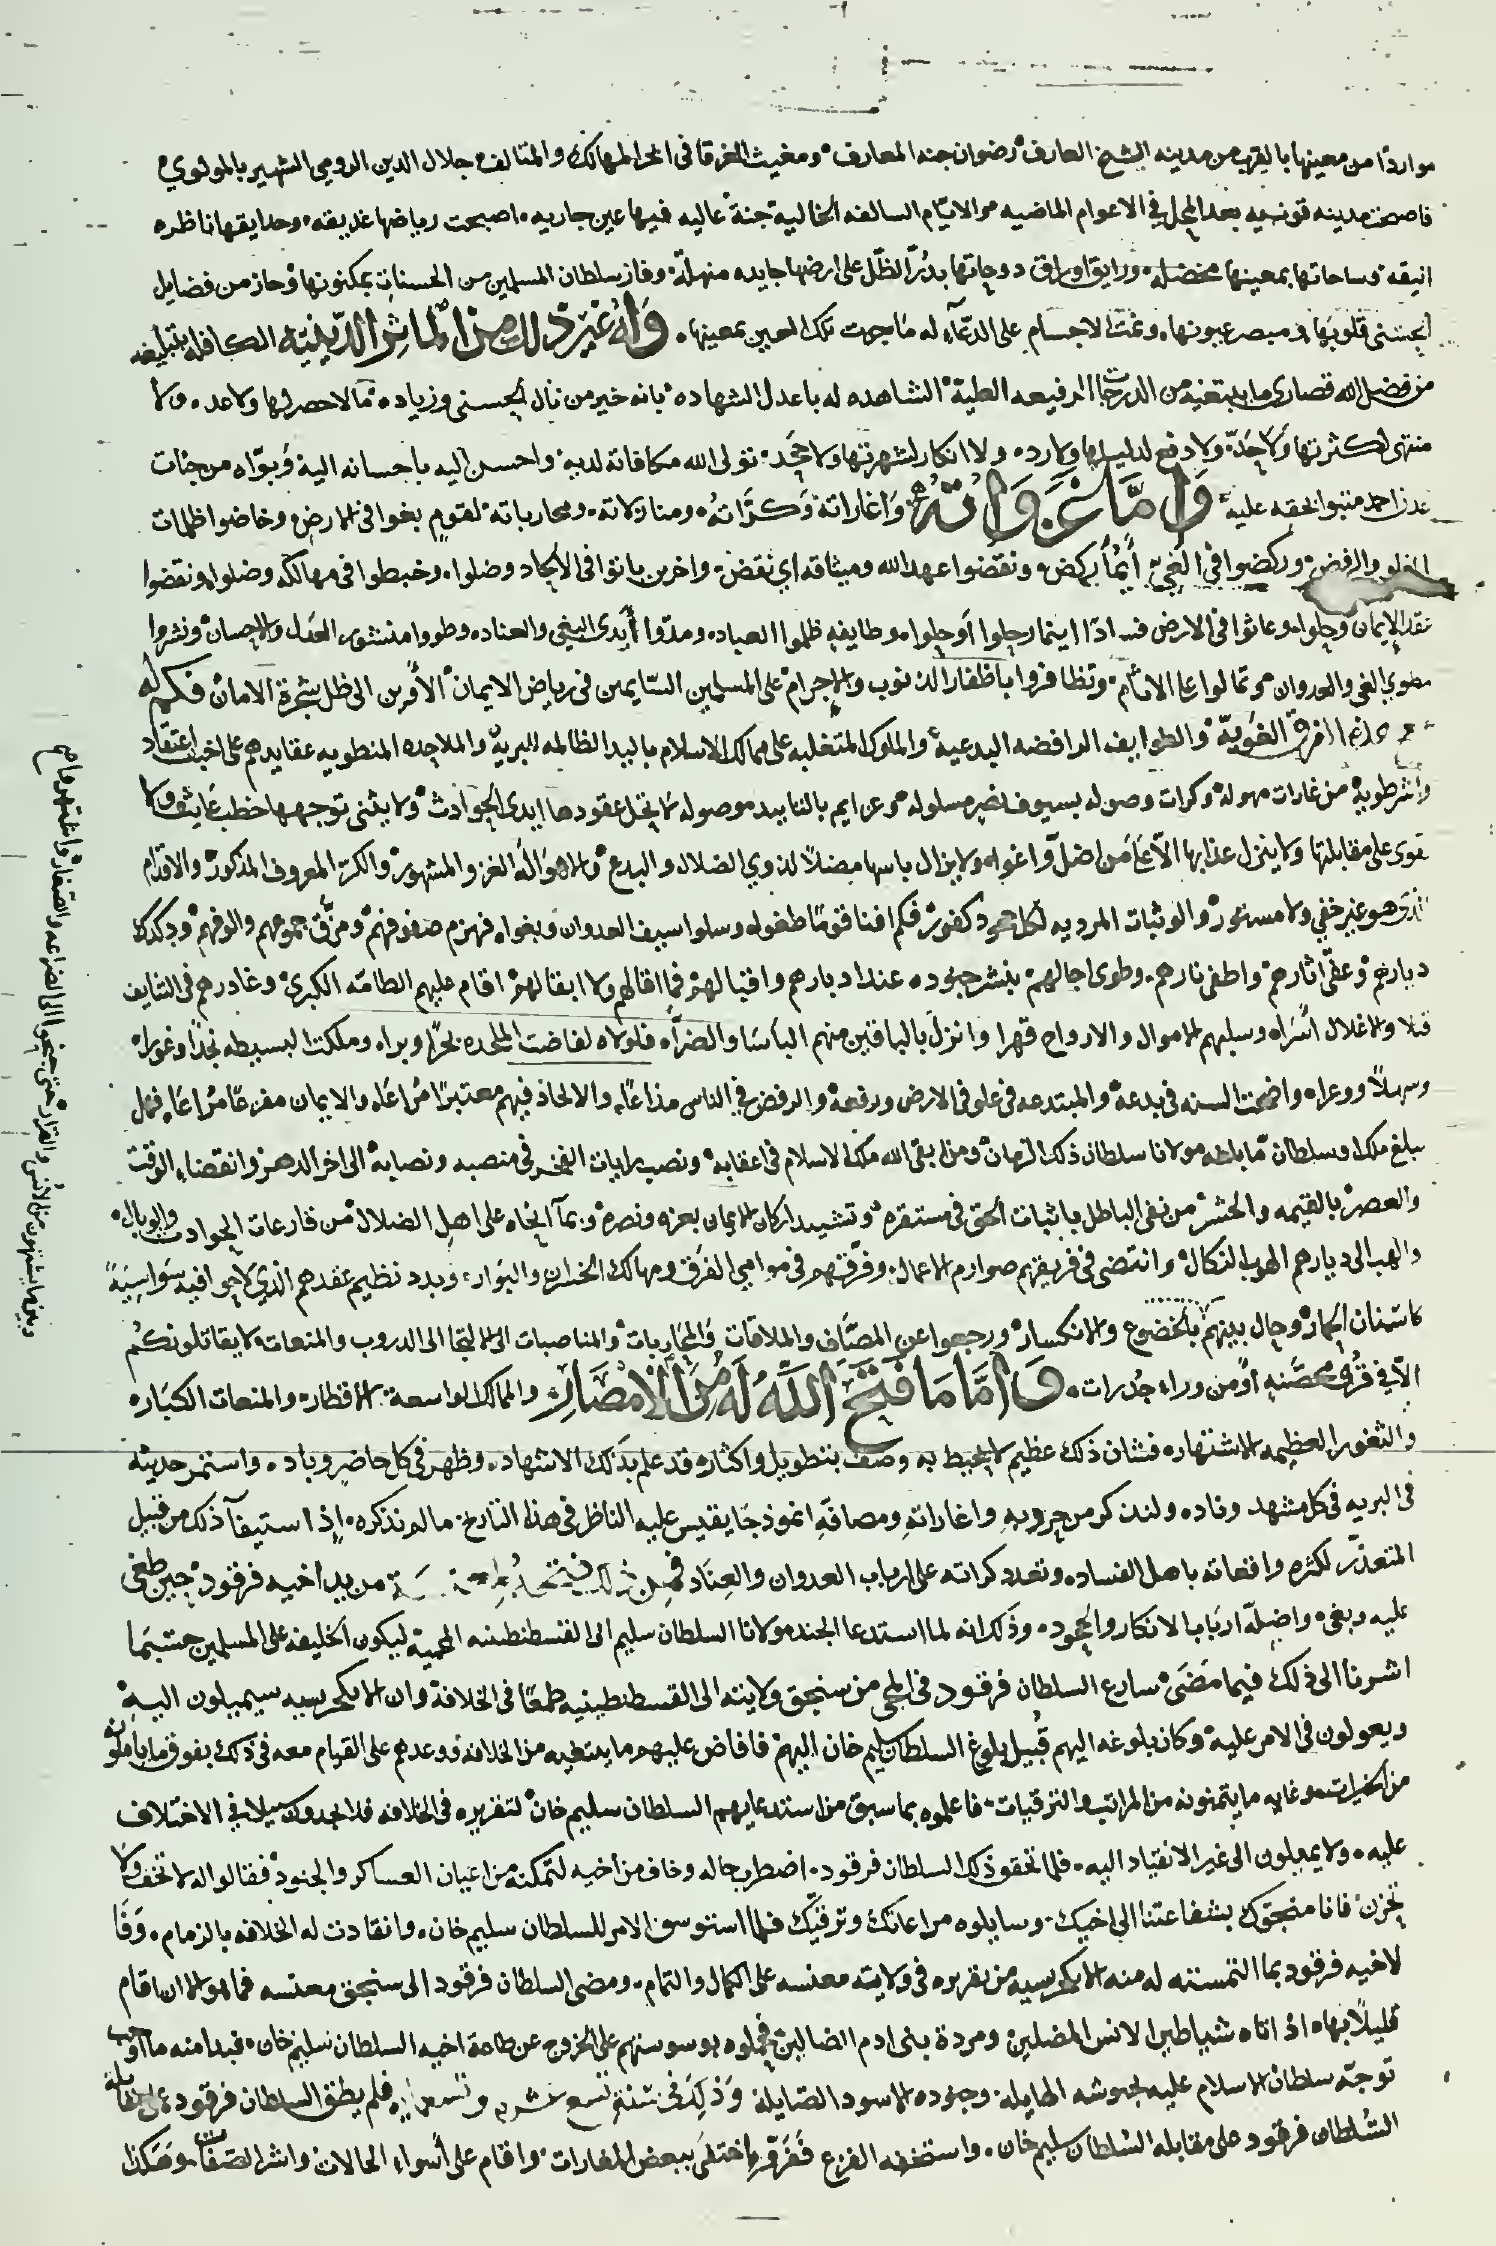 مواردًا من معينها بالقرب من مدينه الشيخ العارف رضوان جنه المعارف ومغيث الغرقا في المهالك والمتالف جلال الدين الرومي الشهير بالمولوي
فاصبحت مدينه قونيه بعد المحل في الاعوام الماضيه والايام السالفه الخاليه جنة عاليه فيها عين جاريه اصبحت رياضها غديقه وحدايقها ناظره
انيقه وساحاتها بمعينها مخضله ورايق اوراق دوحاتها بدر الظل على ارضها منهلة وفاز سلطان المسلمين من الحسنات بمكنونها وحاز من فضايل
الحسنى عيونها وعمت الاجسام على الدعاء له ما جرت تلك العين بمعينها وله غير ذلك من المآثر الدينيه الكافله بتبليغه
من فضل الله قصارى ما يبتغيه من الدرجات الرفيعه العلية الشاهده له باعدل الشهاده بانه خير من نال الحسنى وزياده مما لا حصر لها ولا عد ولا
منتهى لكثرتها ولا حد ولا دفع لدليلها ولا رد ولا انكار لشهرتها ولا جحد تولى الله مكافاته لديه واحسن اليه باحسانه اليه وبواه من جنات
عدن عليه واما غزواته واغاراته وكراته ومنازلاته ومحارباته لقوم بغوا في الارض وخاضوا ظلمات
والرفض وركضوا في الغي ايما ركض ونقضوا عهد الله وميثاقه اي نقض واخرين باتوا في الالحاد وضلوا وخبطوا في مهالكه وضلوا ونقضوا
الايمان وحلوا وعاثوا في الارض فسادًا اينما رحلوا او حلوا وطايفه ظلموا العباد ومدوا ايدى البغي والعناد وطووا منشور العدل والاحسان ونشروا
مطوي الغي والعدوان وتمالوا على الاثام وتظافروا باظفار الذنوب والاجرام على المسلمين السايمين في رياض الايمان الافين الى ظل شجرة الامان فكم له
الفرق الغوية والطوايف الرافضه البدعية والملوك المتغلبه على ممالك الاسلام باليد الظالمه البريه والملاحده المنطويه عقايدهم على اخبث اعتقاد
من غارات مهوله وكرات وصوله بسيوف نصر مسلوله وعزايم بالتاييد موصوله لا تحل عقودها ايدى الحوادث ولا يثنى توجهها خطب عايث ولا
يقوى على مقابلتها ولا ينزل عذابها الا على من اضل واغواه ولا يزال باسها مضلاً لذوي الضلال والبدع والاهوا له الغزو المشهور والكر المعروف المذكور والاقدام
الذى هو غير خفي ولا مستور والوثبات المرديه لكل كفور فكم افنا قومًا طغوا وسلوا سيف العدوان وبغوا فهزم صفوفهم ومزق جموعهم والوفهم ودكدك
ديارهم وعفى اثارهم واطفى نارهم وطوى اجالهم بنشر جنوده عند ادبارهم واقبالهم فما اقالهم ولا ابقا لهم اقام عليهم الطامه الكبرى وغادرهم في التنايف
قتلا والاغلال اسرا وسلبهم الاموال والارواح قهرا وانزل بالباقين منهم الباسا والضراء فلولاه لفاضت الملحده بحرًا وبرا وملكت البسيطه نجدًا وغورا
وسهلاً ووعرا واضحت السنه في بدعة والمبتدعه في علو في الارض ورفعة والرفض في الناس مذاعًا والالحاد فيهم معتبرًا مراعًا والايمان مفزعًا مراعًا فهل
بلغ ملك وسلطان ما بلغه مولانا سلطان ذلك الزمان ومن ابقى الله ملك الاسلام في اعقابه ونصب رايات الفخر في منصبه ونصابه الى اخر الدهر وانقضاء الوقت
والعصر بالقيمه والحشر من نفى الباطل باثبات الحق في مستقره وتشييد اركان الايمان بعزه ونصره وبما انحاه على اهل الضلال من قارعات الحوادث والوبال
والهب الى ديارهم الهوب النكال وانتضى في فريقهم صوارم الاعمال وفرقهم في موامي الفرق ومهالك الخسران والبوار وبدد نظيم عقدهم الذي لاحو افيه سواسية
كاسنان الحمار وحال بينهم بالخضوع والانكسار ورجعوا عن المصاف والملاقات والمحاربات والمناصبات الى الالتجا الى الدروب والمنعات لا يقاتلونكم
الا في قرى محصنه او من وراء جدرات واما ما فتح الله له من الامصار والممالك الواسعة الاقطار والمنعات الكبار
والثغور العظيمه الاشتهار فشان ذلك عظيم لا يحيط به وصف بتطويل واكثار قد علم بذلك الاشهاد وظهر في كل حاضر وباد واستمر حديثه
في البريه في كل مشهد وناد ولنذكر من حروبه واغاراته ومصافه انموذجًا يقيس عليه الناظر في هذا التاريخ ما لم نذكره اذ استيفآ ذلك من قبيل
المتعذر لكثره واقعاته باهل الفساد وتعدد كراته على ارباب العدوان والعناد فمن ذلك من يد اخيه فرقود حين طغى
عليه وبغى واضله ارباب الانكار والجحود وذلك انه لما استدعا الجند مولانا السلطان سليم الى القسطنطينيه المحمية ليكون الخليفه على المسلمين حسبما
اشرنا الى ذلك فيما مضى سارع السلطان فرقود في المجى من سنجق ولايته الى القسطنطينيه طمعًا في الخلافه وان الانكجريه سيميلون اليه
ويعولون في الامر عليه وكان بلوغه اليهم قبيل بلوغ السلطان سليم خان اليهم فافاض عليهم ما يبتغيه من الخلافه ووعدهم على القيام معه في ذلك بفوق ما ياملون
من الخيرات وغايه ما يتمنونه من المراتب والترقيات فاعلموه بما سبق من استدعايهم السلطان سليم خان لتقريره في الخلافه فلا يجدون سبيلا في الاختلاف
عليه ولا يميلون الى غير الانقياد اليه فلما تحقق ذلك السلطان فرقود اضطرب حاله وخاف من اخيه لتمكنه من اعيان العساكر والجنود فقالوا له لا تخف ولا
تحزن فانا بشفاعتنا الى اخيك وسايلوه مراعاتك وترقيك فلما استوسق الامر للسلطان سليم خان وانقادت له الخلافه بالزمام وفا
لاخيه فرقود بما التمسته له منه الانكجريه من تقريره في ولايته معنسه على الكمال والتمام ومضى السلطان فرقود الى سنجق معنسه فما هو الا ان اقام
قليلاً بها اذ اتاه شياطين الانس المضلين ومردة بنى ادم الضالين فحملوه بوسوستهم على الخروج عن طاعة اخيه السلطان سليم خان فبدا منه ما اوجب
توجه سلطان الاسلام عليه بجيوشه الهايله وجنوده الاسود الصايلة وذلك في سنة تسع عشره وتسعمايه فلم يطق السلطان فرقود على مقابلة
السلطان فرقود على مقابله السلطان سليم خان واستخفه الفزع ففر واختفى ببعض المغارات واقام على اسواء الحالات واشر الصفات وهكذا
دبين ما يشتهون من الانس والقرار حتى جنحوا الى الضراعه والصغار واشتهر وام